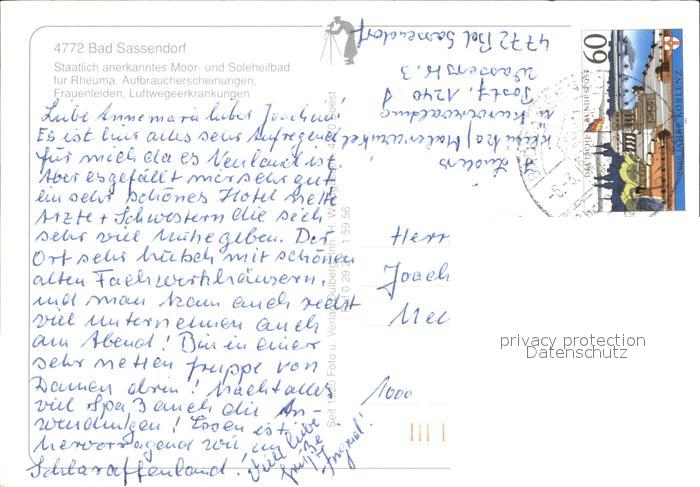 4772 Bad Sassendorf
Staatlich anerkanntes Moor- und Soleheilbad
für Rheuma, Aufbraucherscheinungen,
Frauenleiden, Luftwegeerkrankungen
Liebe Annemarie lieber Joachim!
Es ist hier alles sehr aufregend
für mich da es Neuland ist.
Aber es gefällt mir sehr gut
ein sehr schönes Hotel nette
Ärzte + Schwestern die sich
sehr viel Mühe geben. Der
Ort sehr hübsch mit schönen
alten Fachwerkhäusern,
und man kann auch recht
viel unternehmen auch
am Abend! Bin in einer
sehr netten Gruppe von
Damen drin! Macht alles
viel Spaß auch die An-
wendungen! Essen ist
hervorragend wie im
Schlaraffenland!
Viel liebe
Grüße
Ingrid!
Klinik
Kurverwaltung
Postf. 1240
Wasserstr. 3
4772 Bad Sassendorf
Herr
Joach
1000
60
DEUTSCHE BUNDESPOST
2000 JAHRE KOBLENZ
privacy protection
Datenschutz